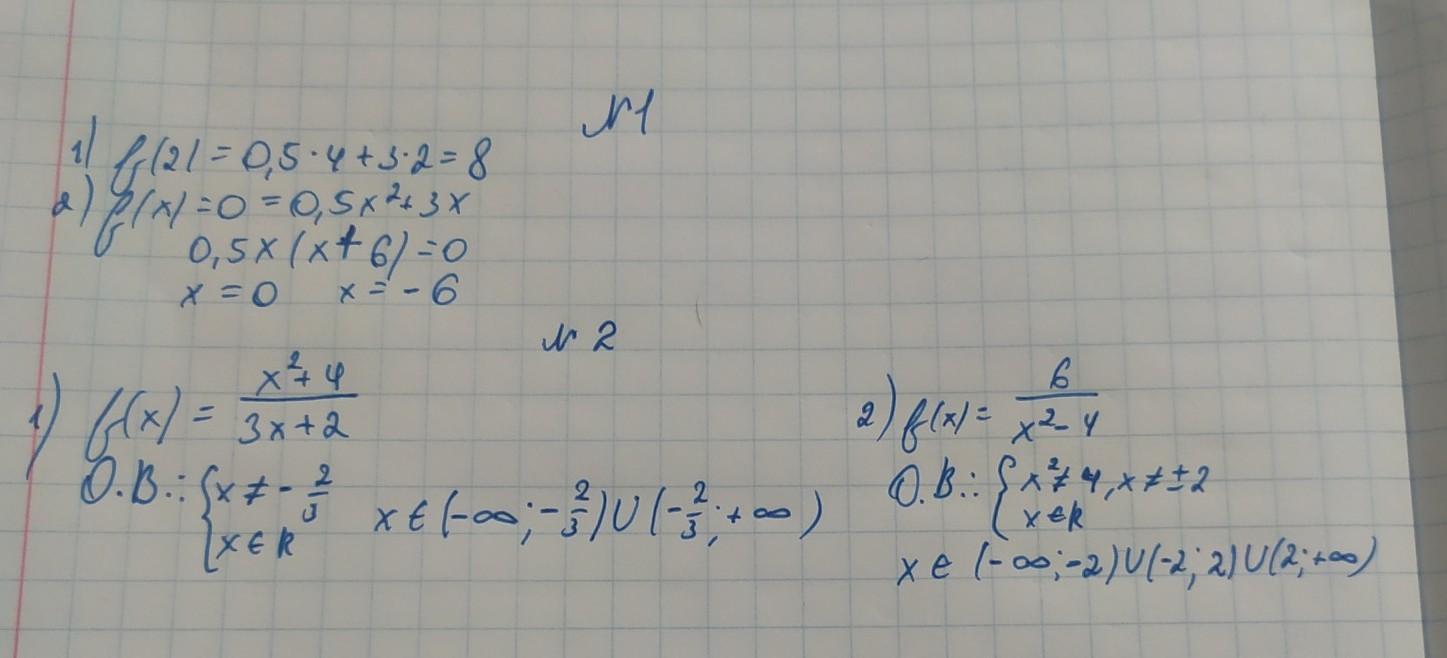 №1
1) f(2) = 0,5·4+3·2=8
2) f(x)=0=0,5x²+3x
0,5x(x+6)=0
x=0 x=-6
№2
1) f(x) = \frac{x²+4}{3x+2}
О.В.: {x ≠ -\frac{2}{3}
{x ∈ R
x ∈ (-∞; -\frac{2}{3}) ∪ (-\frac{2}{3}; +∞)
2) f(x) = \frac{6}{x²-4}
О.В.: {x² ≠ 4, x ≠ ±2
{x ∈ R
x ∈ (-∞;-2)∪(-2;2)∪(2;+∞)